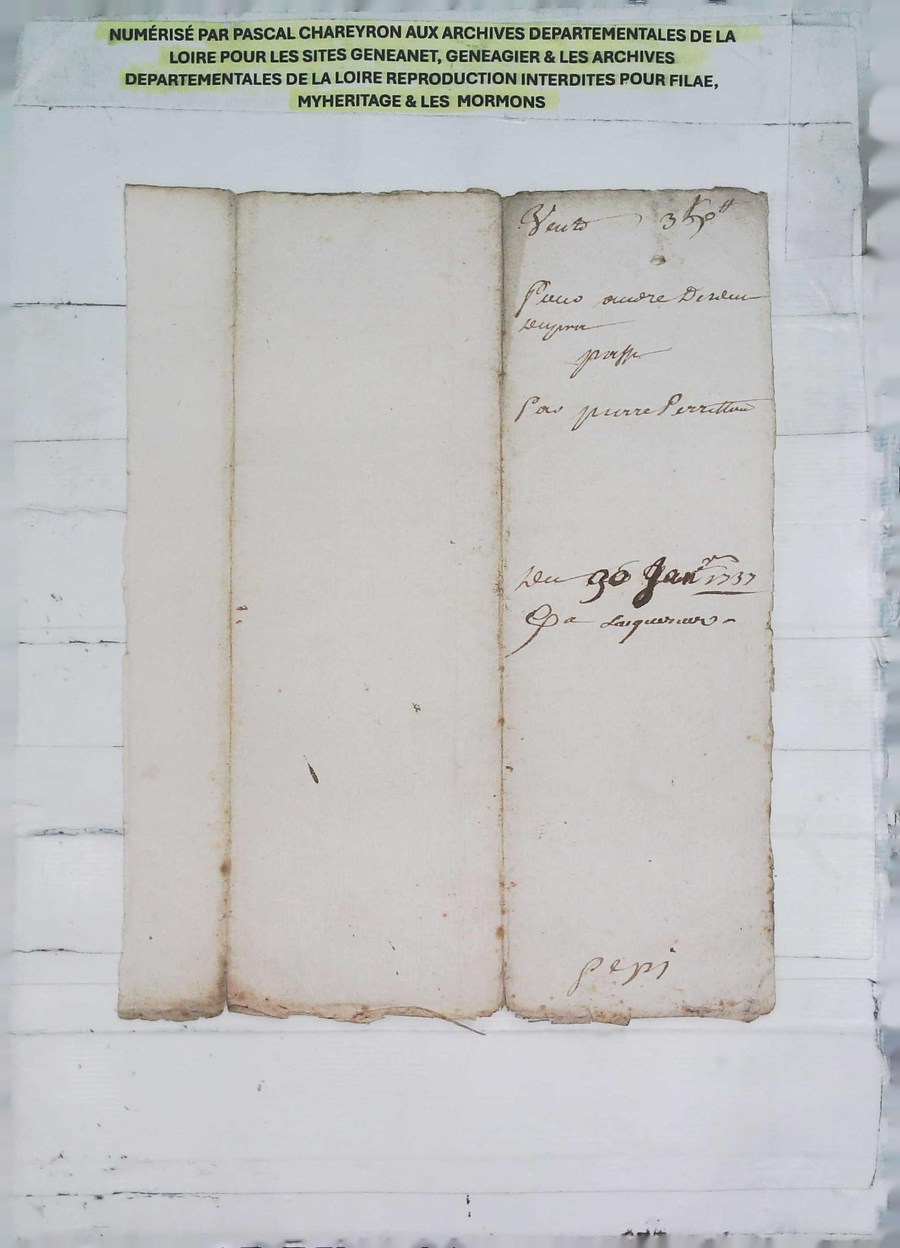 NUMÉRISÉ PAR PASCAL CHAREYRON AUX ARCHIVES DEPARTEMENTALES DE LA
LOIRE POUR LES SITES GENEANET, GENEAGIER & LES ARCHIVES
DEPARTEMENTALES DE LA LOIRE REPRODUCTION INTERDITES POUR FILAE,
MYHERITAGE & LES MORMONS
Vente
Pour andre
passe
Par pierre
Du 30 Janr 1737
pepi